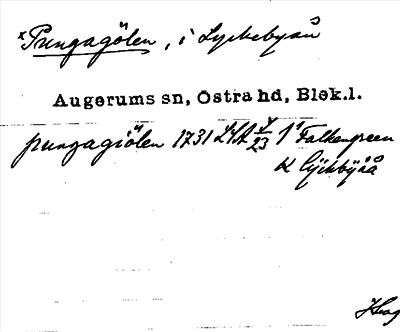 x Pungagölen, i Lyckebyån
Augerums sn, Östra hd, Blek.l.
pungagiölen 1731 LSA 23 1' Falkengreen
Lÿckbÿåå